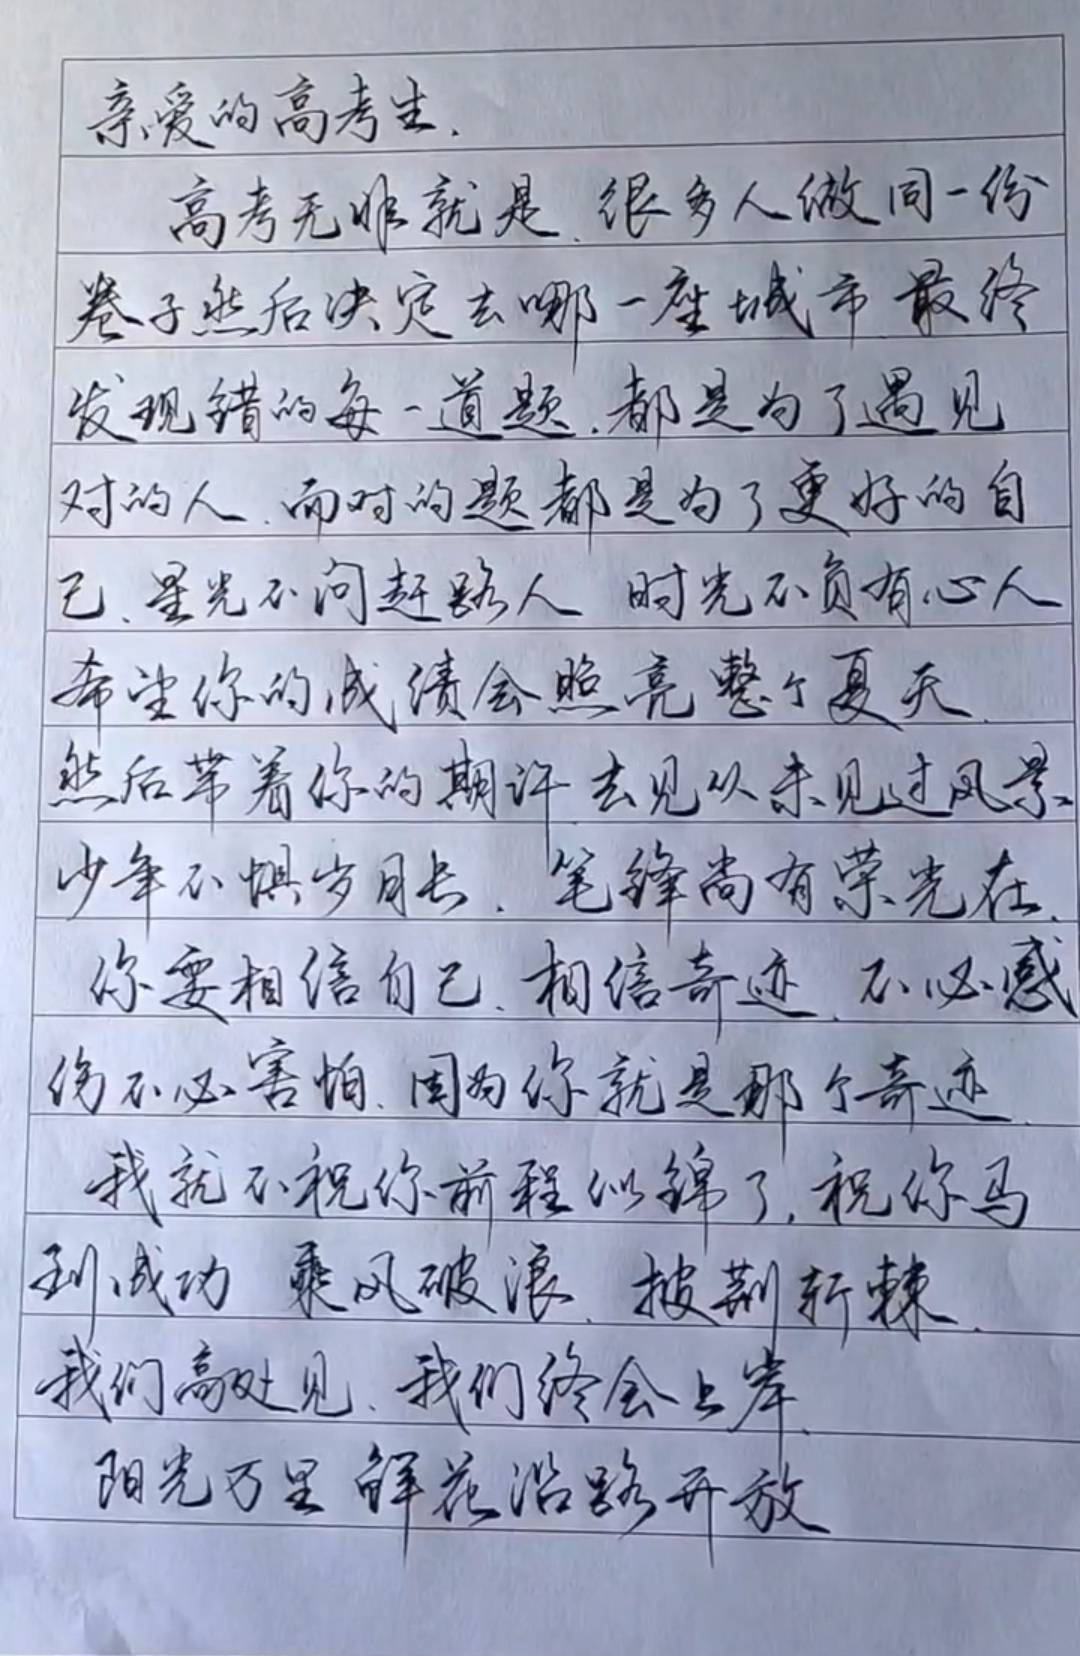 亲爱的高考生.
高考无非就是.很多人做同一份
卷子然后决定去哪一座城市 最终
发现错的每一道题.都是为了遇见
对的人.而对的题都是为了更好的自
己.星光不问赶路人 时光不负有心人
希望你的成绩会照亮整个夏天.
然后带着你的期许.去见从未见过风景
少年不惧岁月长.笔锋尚有荣光在.
你要相信自己.相信奇迹.不必感
伤不必害怕.因为你就是那个奇迹.
我就不祝你前程似锦了,祝你马
到成功 乘风破浪.披荆斩棘.
我们高处见.我们终会上岸.
阳光万里 鲜花沿路开放